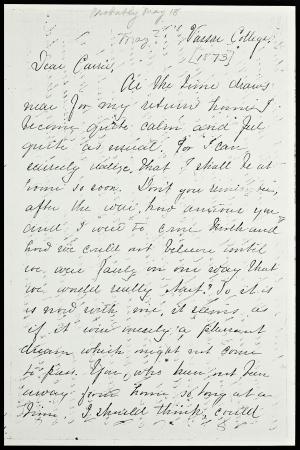 Probably May 18
May    Vassar College.
[1873]
Dear Carrie,
As the time draws
near for my return home I
become quite calm and feel
quite as usual. For I can
scarcely realize that I shall be at
home so soon. Don't you remember,
after the war, how anxious you
and I were to come North and
how we could not believe until
we were fairly on our way that
we would really start? So it is
now with me, it seems as
if it were merely a pleasant
dream which might not come
to pass. You, who have not been
away from home so long at a
time, I should think, could